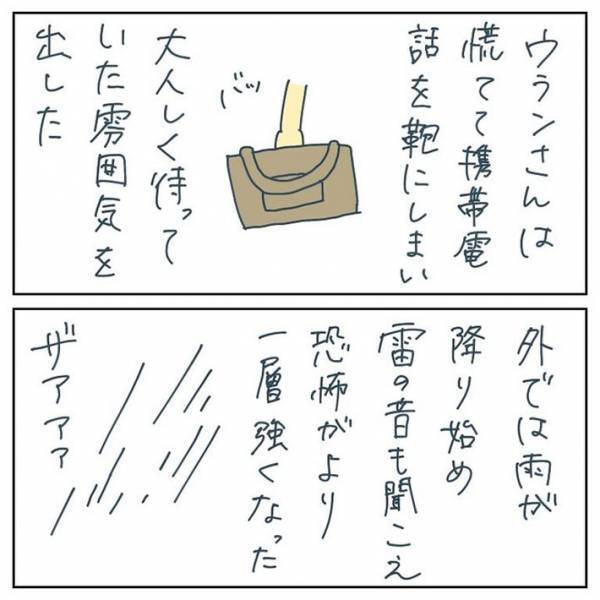 ウランさんは
慌てて携帯電
話を鞄にしまい
バッ
大人しく待って
いた雰囲気を
出した
外では雨が
降り始め
雷の音も聞こえ
恐怖がより
一層強くなった
ザァァァ